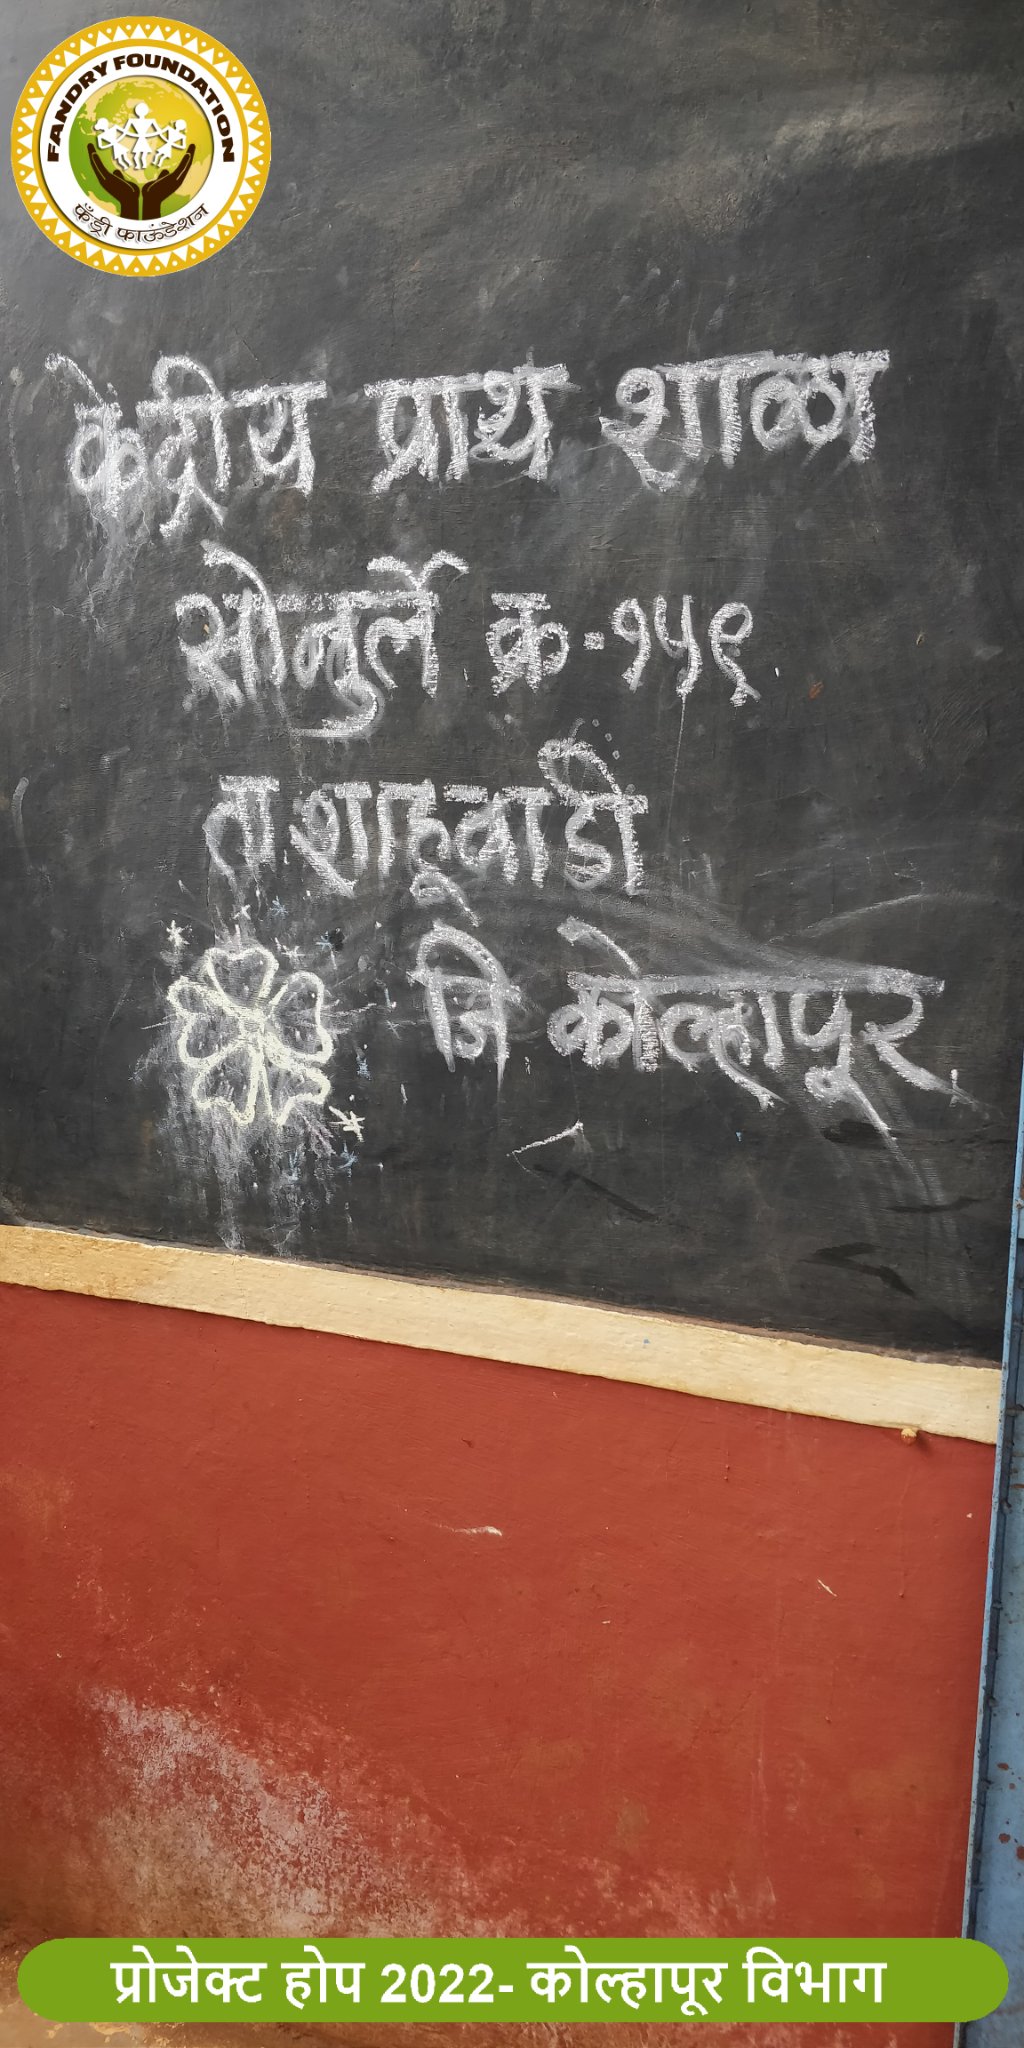 FANDRY FOUNDATION
फँड्री फाऊंडेशन
केंद्रीय प्राथ शाळा
सोनुर्ले क्र-१५९
ता शाहूवाडी
जि कोल्हापूर
प्रोजेक्ट होप 2022- कोल्हापूर विभाग